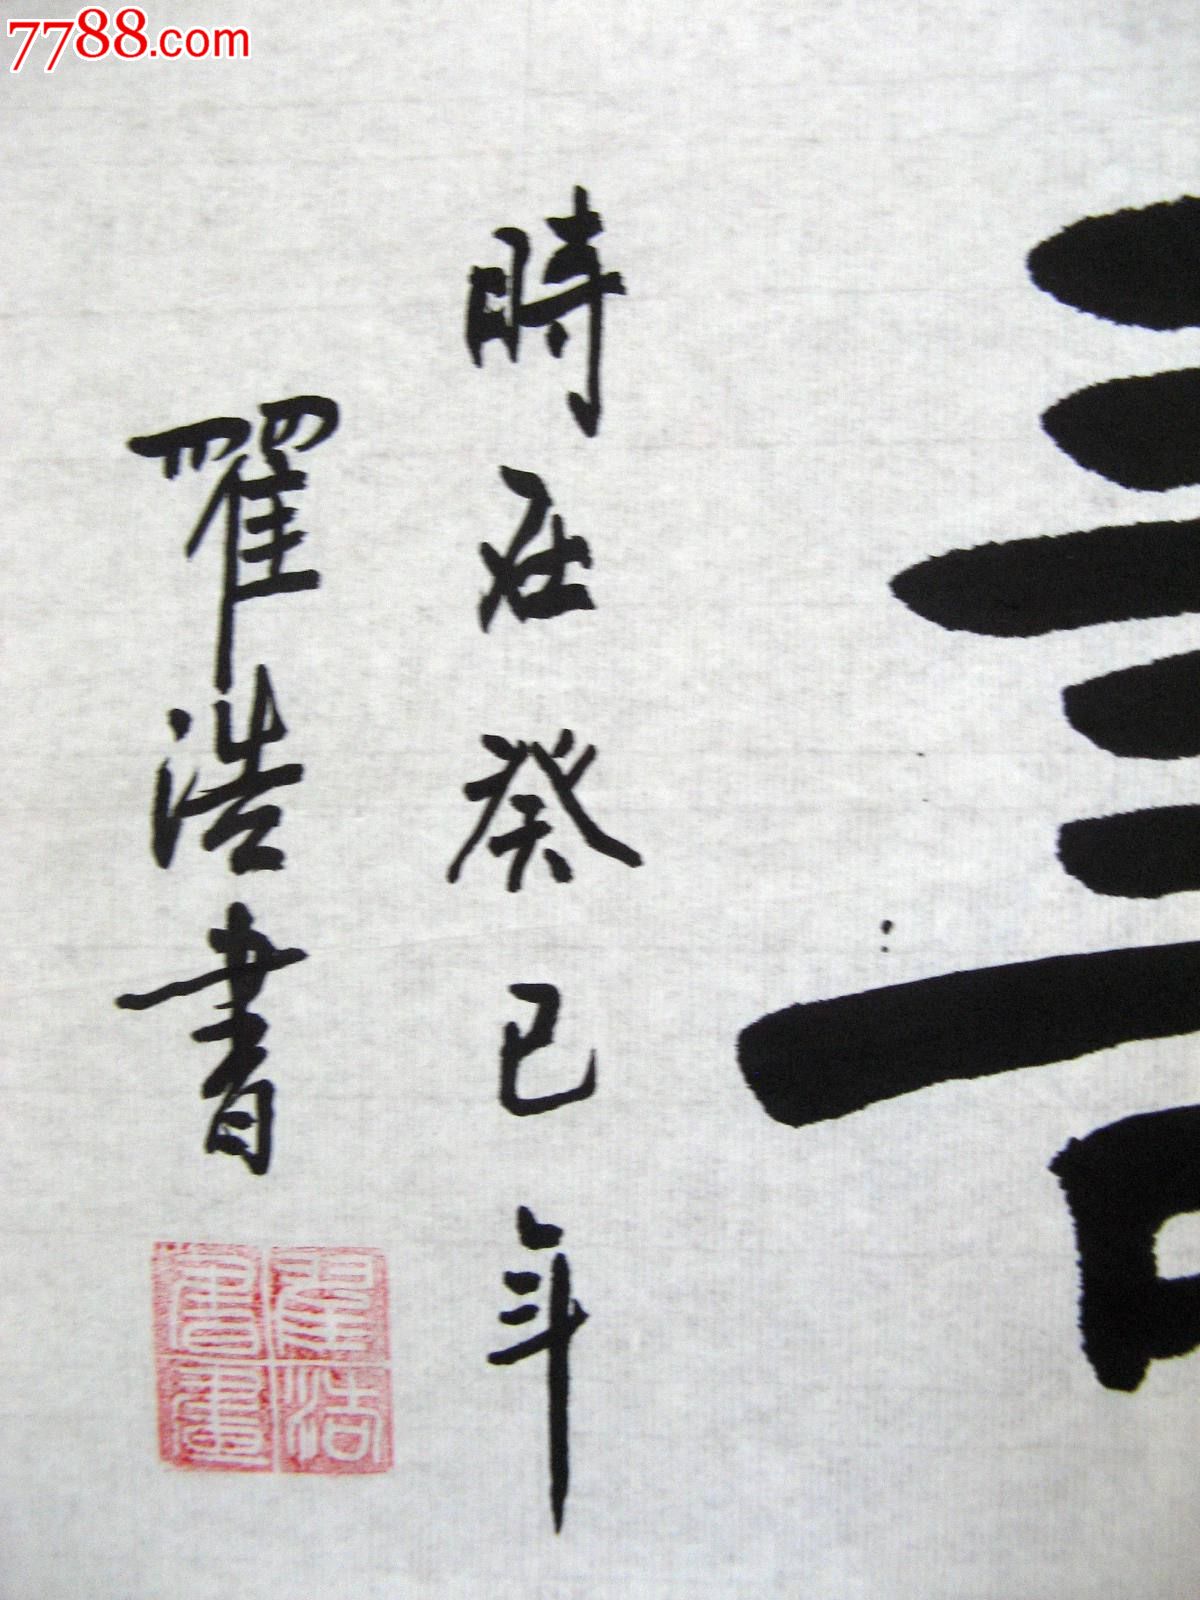 7788.com
時在癸巳年
瞿浩書
瞿浩書畫